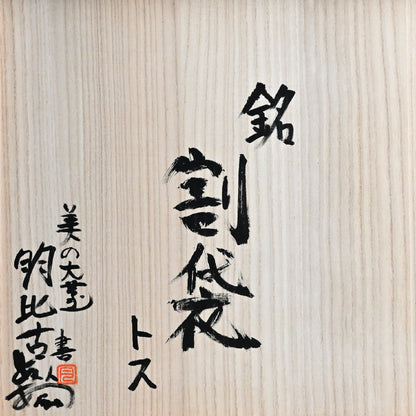 銘
割袋
トス
美の大萱
比古
書